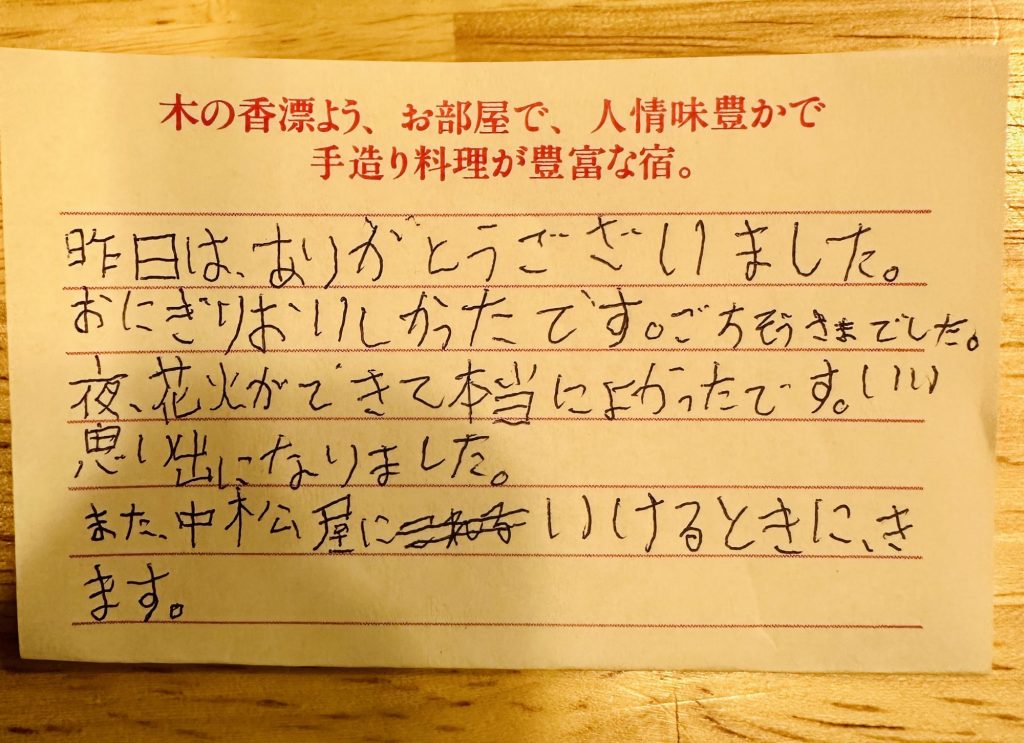 木の香漂よう、お部屋で、人情味豊かで
手造り料理が豊富な宿。
昨日は、ありがとうございました。
おにぎりおいしかったです。ごちそうさまでした。
夜、花火ができて本当によかったです。いい
思い出になりました。
また、中松屋にいけるときに、き
ます。